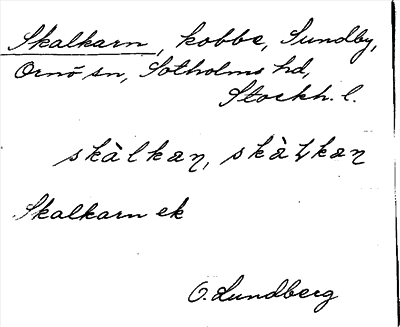 Skalkarn, kobbe, Sundby,
Ornö sn, Sotholms hd,
Stockh. l.
skàlkæη, skàƚkæη
Skalkarn ek
O. Lundberg